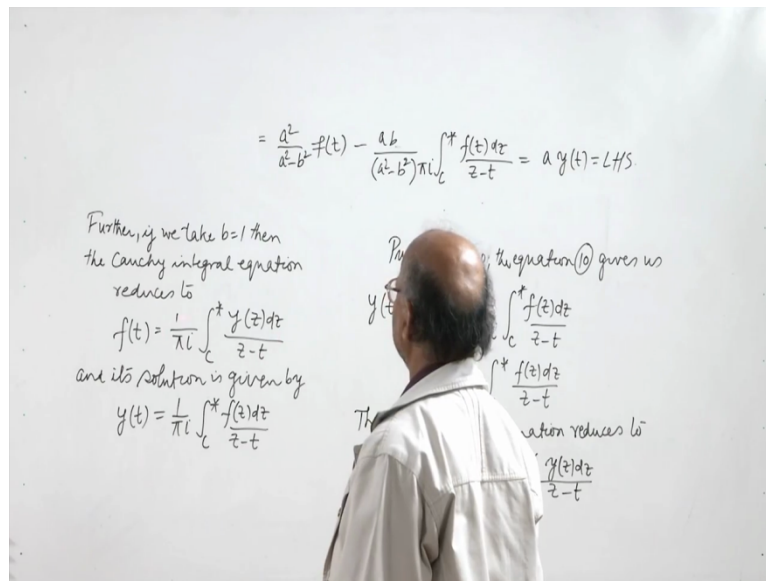 = a²/(a²-b²) f(t) - ab/((a²-b²)πi) ∫_C^* f(z)dz/(z-t) = a y(t) = LHS.
Further, if we take b=1 then
the Cauchy integral equation
reduces to
f(t) = 1/(πi) ∫_C^* y(z)dz/(z-t)
and its solution is given by
y(t) = 1/(πi) ∫_C^* f(z)dz/(z-t)
the equation ⑩ gives us
∫_C^* f(z)dz/(z-t)
∫^* f(z)dz/(z-t)
reduces to
y(z)dz/(z-t)